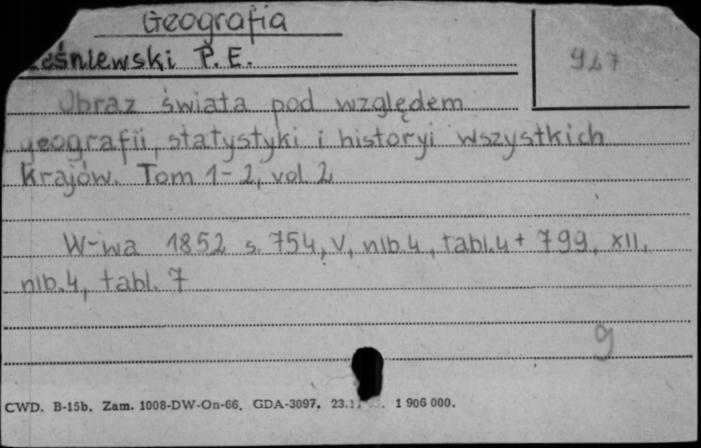 Geografia
Leśniewski P. E.
947
Obraz świata pod względem
geografii, statystyki i historyi wszystkich
krajów. Tom 1-2, vol. 2
W-wa 1852 s. 754, V, nlb.4, tabl.4 + 799, XII,
nlb.4, tabl. 7
g
CWD. B-15b. Zam. 1008-DW-On-66. GDA-3097. 1 906 000.